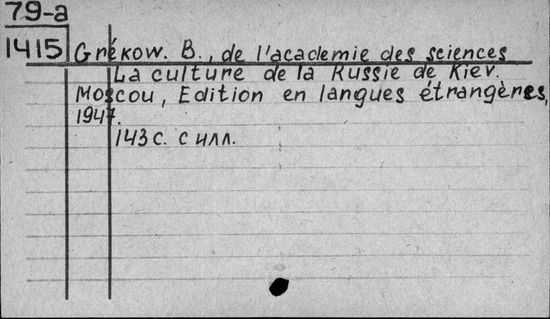 79-a
1415
Grékow. B., de l'academie des sciences
La culture de la Russie de Kiev.
Moscou, Edition en langues étrangères,
1947.
143 с. с илл.